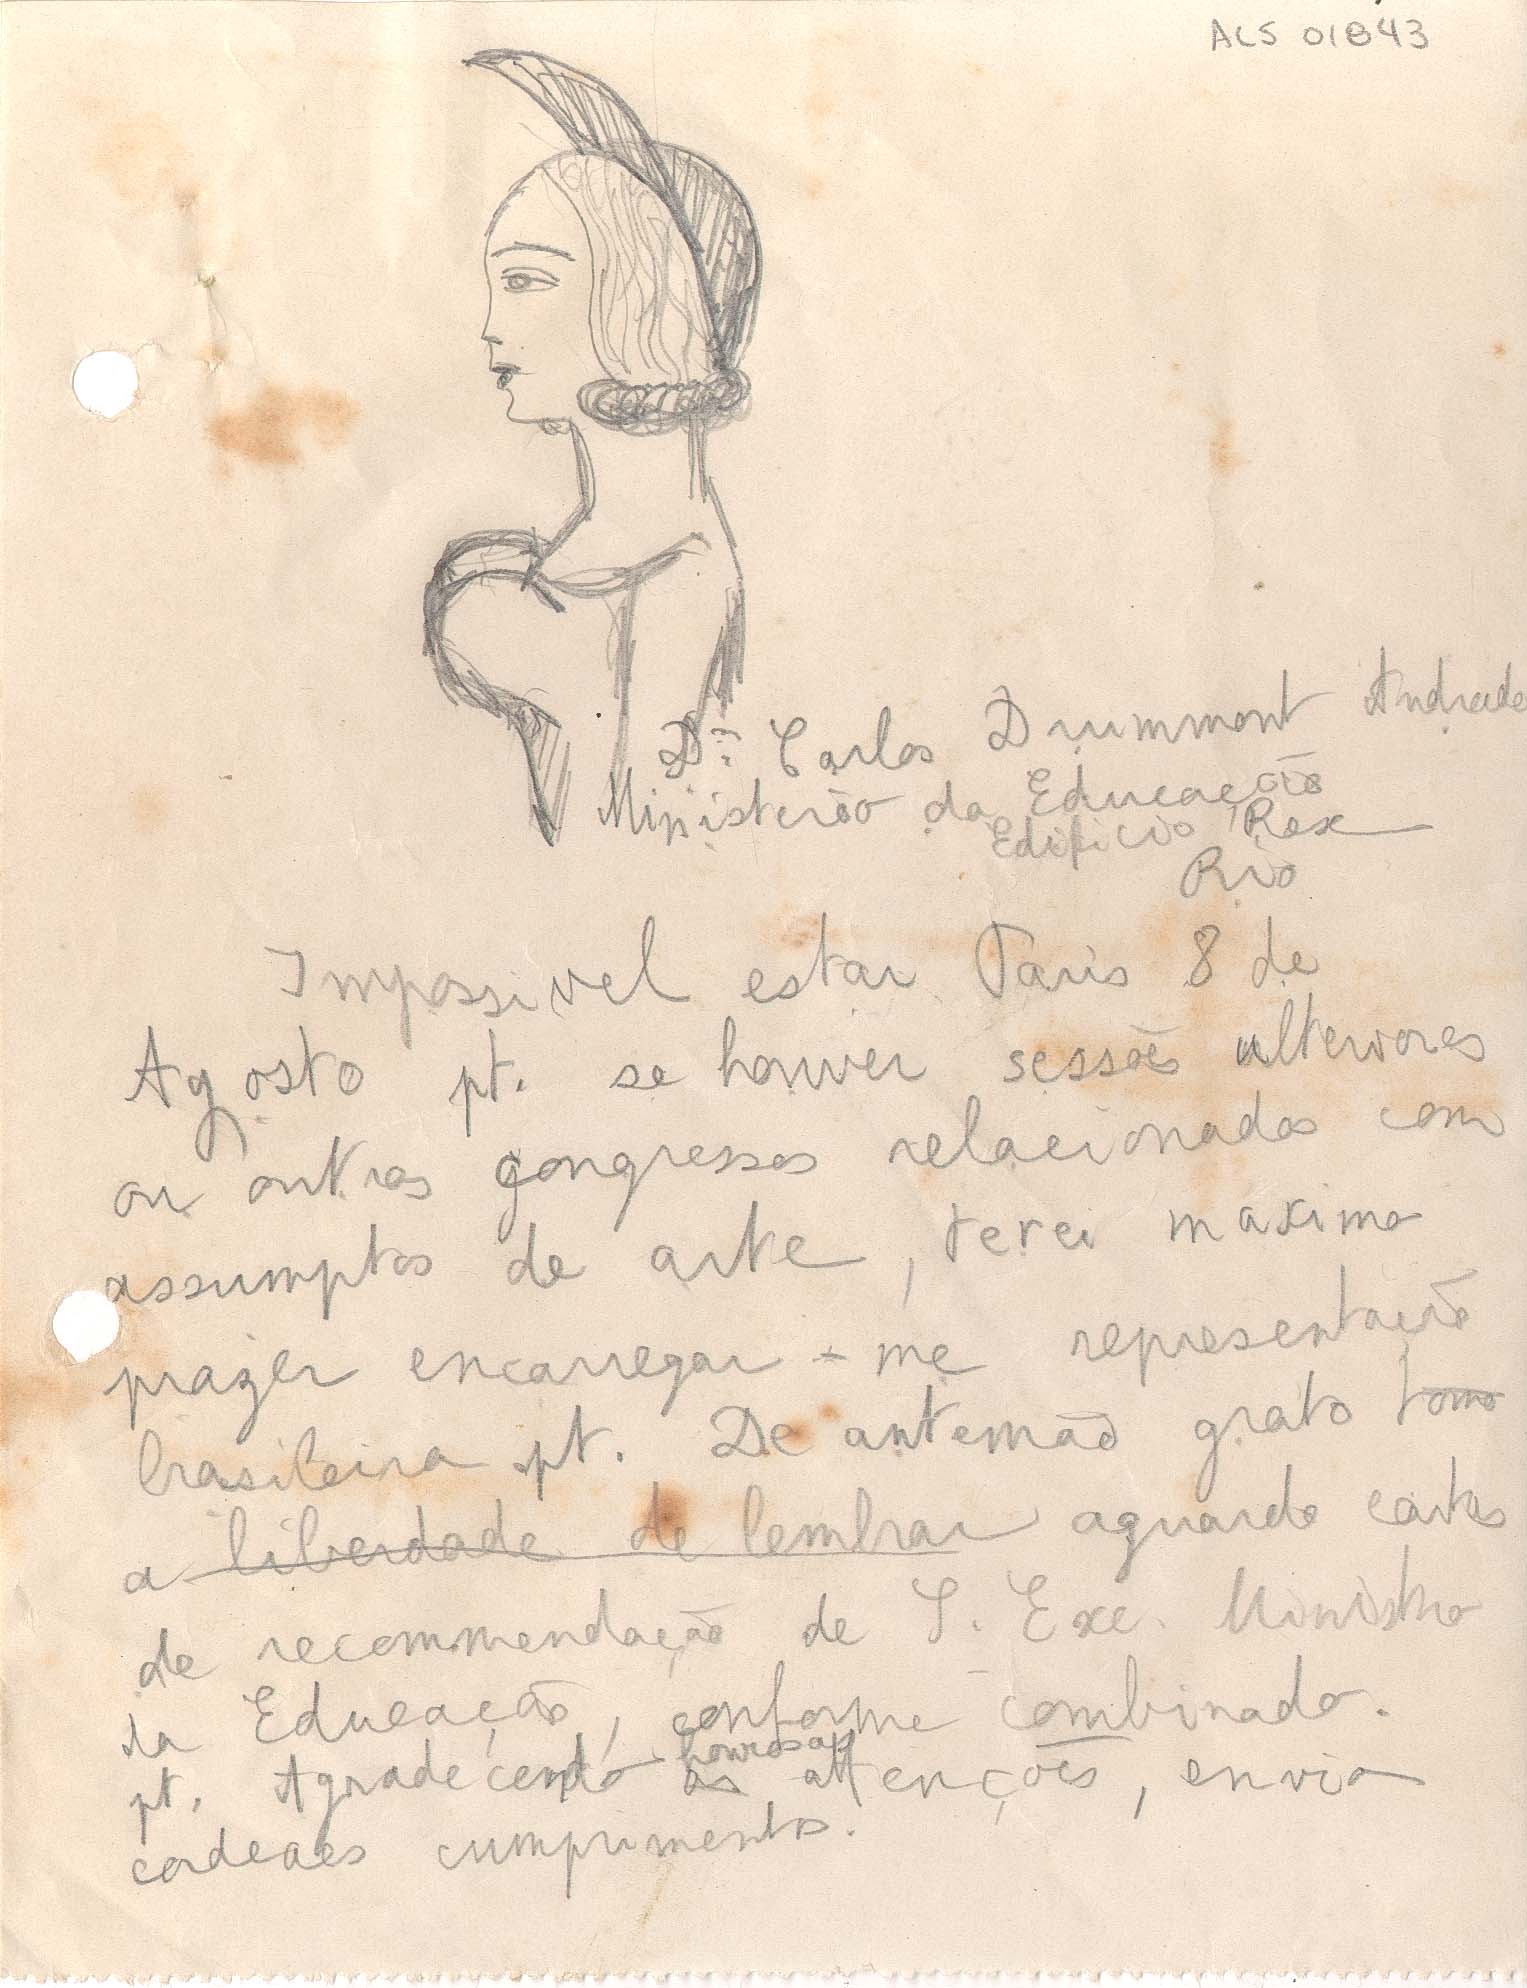 ALS 01843
Dr. Carlos Drummont Andrade
Ministerio da Educação
Edificio Rex
Rio
Impossivel estar Paris 8 de
Agosto pt. se houver sessões ulteriores
ou outros congressos relacionados com
assumptos de arte, terei maximo
prazer encarregar-me representação
brasileira pt. De antemão grato tomo
a liberdade de lembrar aguardo cartas
de recommendação de S. Exc. Ministro
da Educação, conforme combinado.
pt. Agradecendo as honrosas attenções, envio
cordeaes cumprimentos.